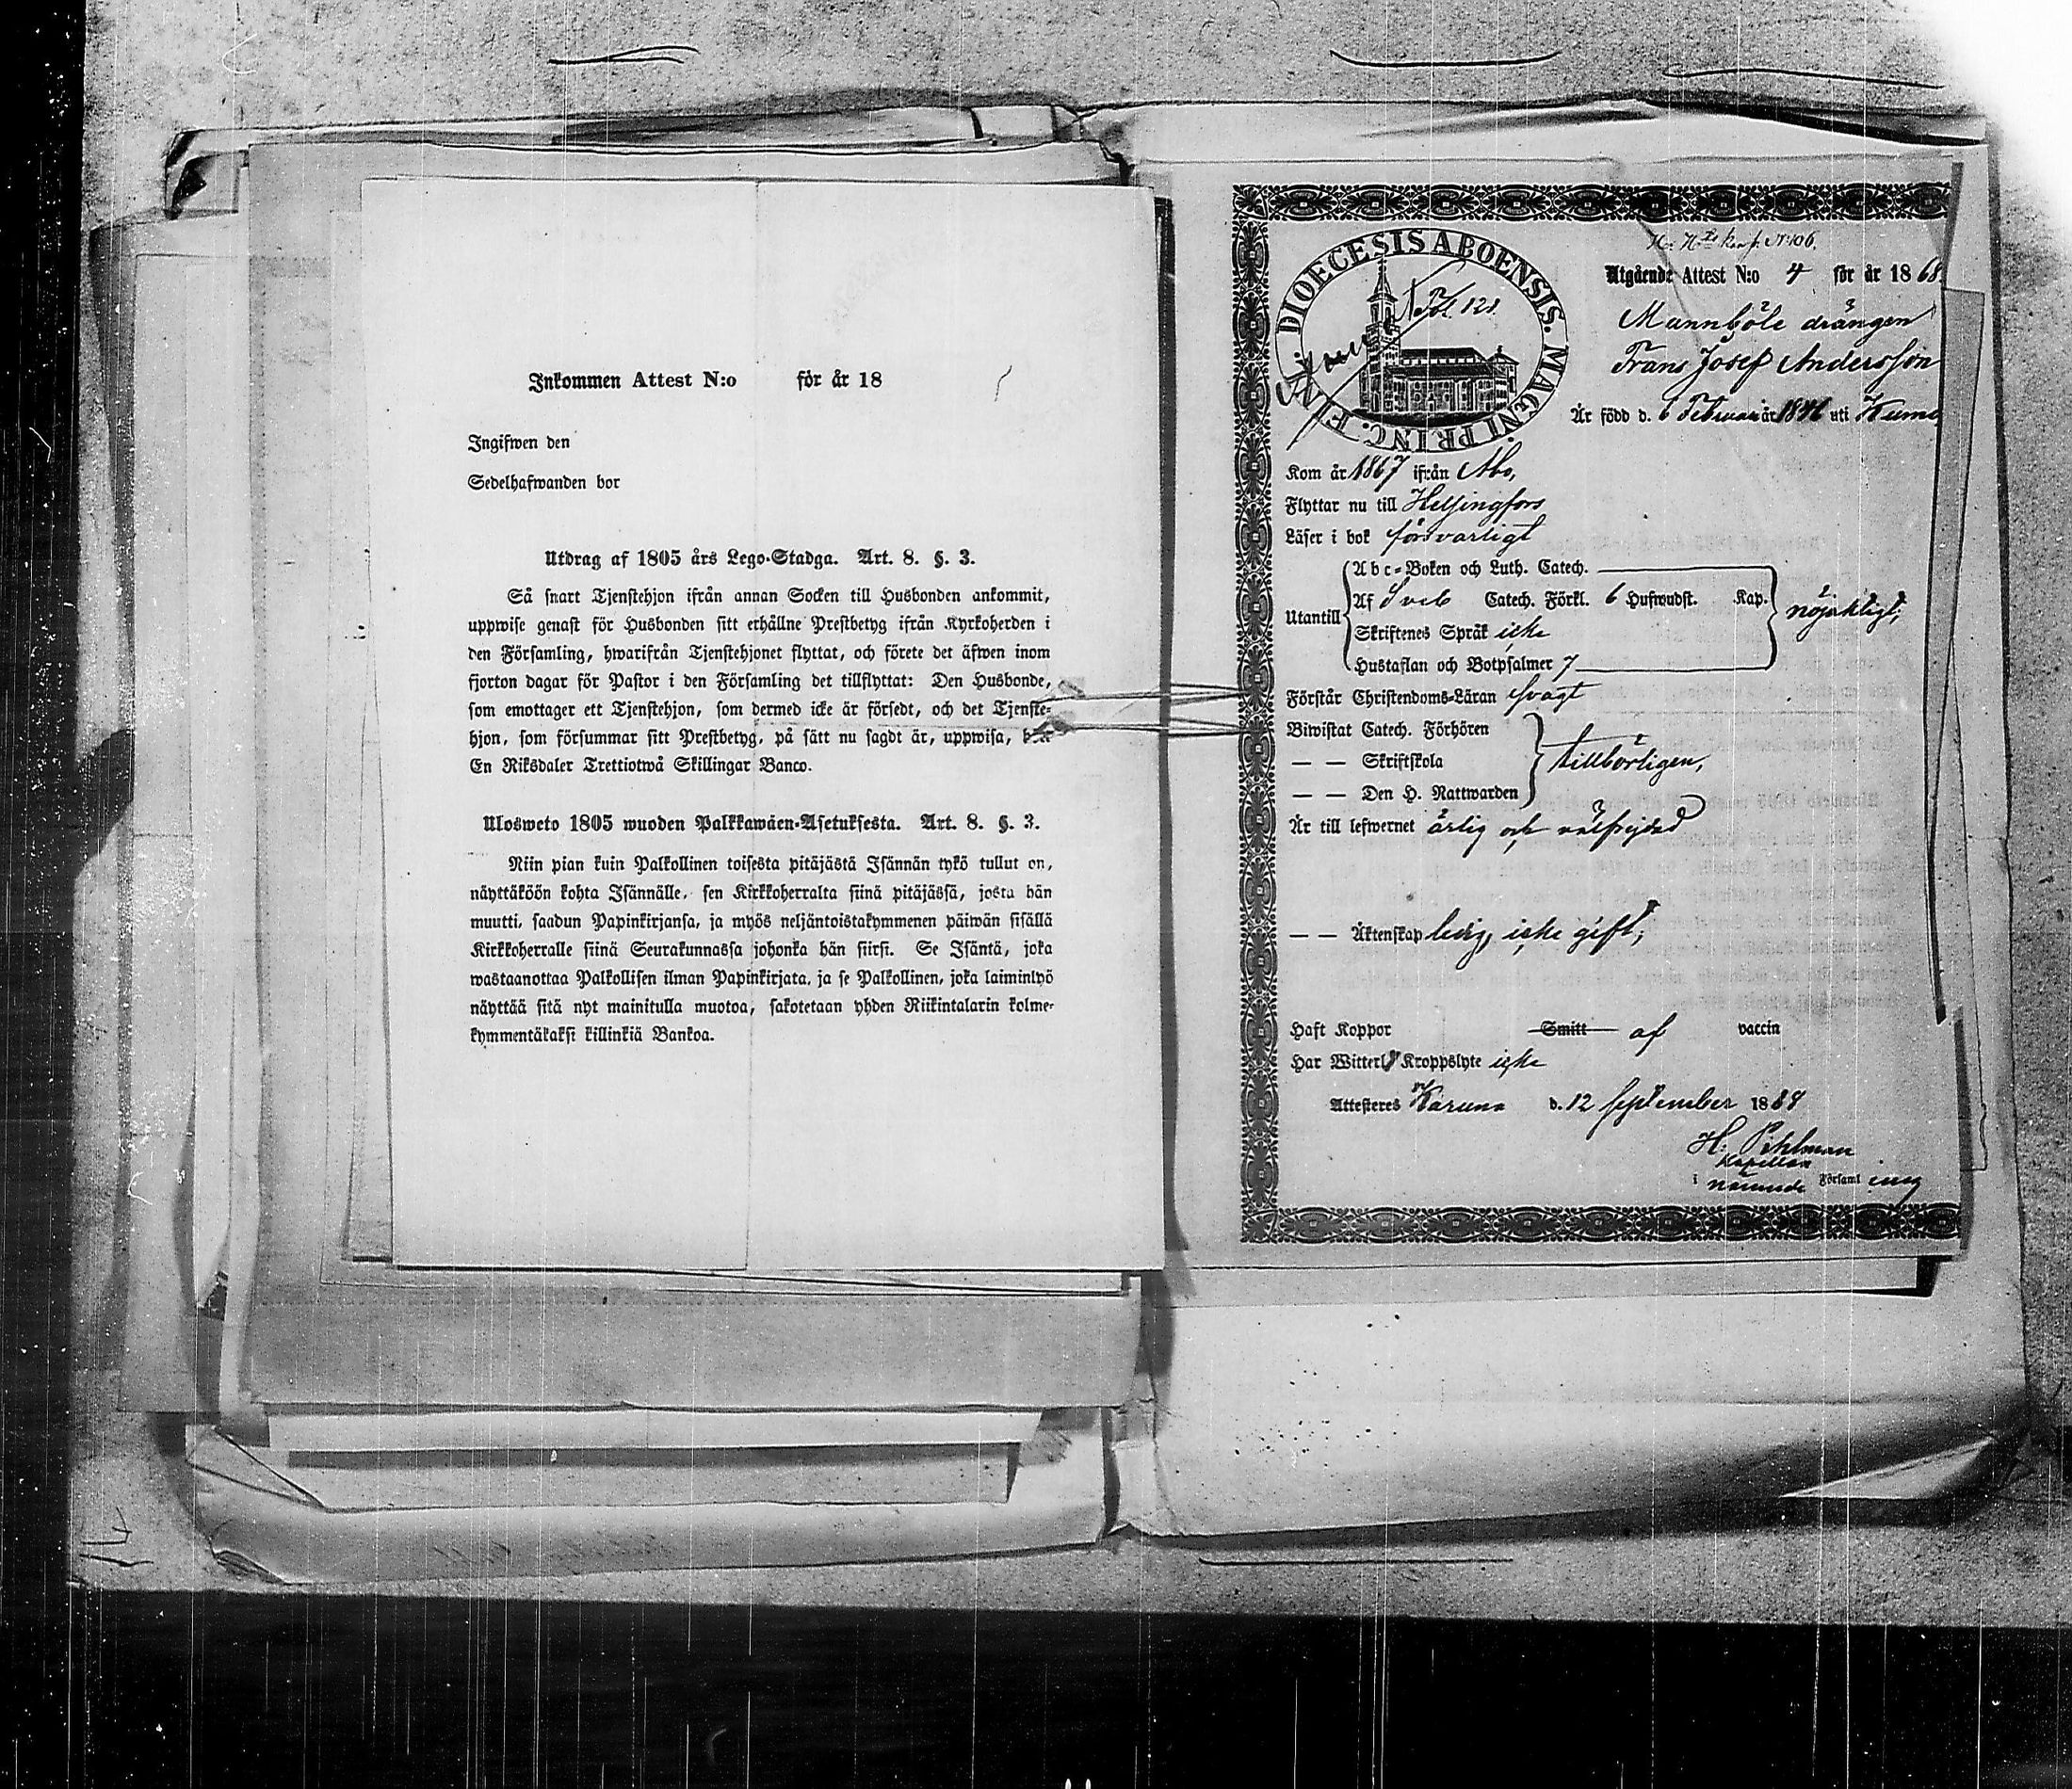 Inkommen Attest N:o för år 18
Ingifwen den
Sedelhafwanden bor
Utdrag af 1805 års Lego-Stadga. Art. 8. §. 3.
Så snart Tjenstehjon ifrån annan Socken till Husbonden ankommit,
uppwise genast för Husbonden sitt erhållne Prestbetyg ifrån Kyrkoherden i
den Församling, hwarifrån Tjenstehjonet flyttat, och förete det äfwen inom
fjorton dagar för Pastor i den Församling det tillflyttat: Den Husbonde,
som emottager ett Tjenstehjon, som dermed icke är försedt, och det Tjenste-
hjon, som försummar sitt Prestbetyg, på sätt nu sagdt är, uppwisa,
En Riksdaler Trettiotwå Skillingar Banco.
Ulosweto 1805 wuoden Palkkawäen-Asetuksesta. Art. 8. §. 3.
Niin pian kuin Palkollinen toisesta pitäjästä Isännän tykö tullut on,
näyttäköön kohta Isännälle, sen Kirkkoherralta siinä pitäjässä, josta hän
muutti, saadun Papinkirjansa, ja myös neljäntoistakymmenen päiwän sisällä
Kirkkoherralle siinä Seurakunnassa johonka hän siirsi. Se Isäntä, joka
wastaanottaa Palkollisen ilman Papinkirjata, ja se Palkollinen, joka laiminlyö
näyttää sitä nyt mainitulla muotoa, sakotetaan yhden Riikintalarin kolme-
kymmentäkaksi killinkiä Bankoa.
DIOECESIS ABOENSIS. MAGNI PRINC. FINL.
Fol. 121
Utgående Attest N:o 4 för år 1868
Mannböle drängen
Frans Josef Andersson
Är född d. 6 Februari år 1846 uti Kumo
Kom år 1867 ifrån Åbo,
Flyttar nu till Helsingfors
Läser i bok försvarligt
Utantill
Abc-Boken och Luth. Catech.
Af Sveb Catech. Förkl. 6 Hufwudst. Kap.
Skriftenes Språk icke
Hustaflan och Botpsalmer 7
nöjaktigt,
Förstår Christendoms-Läran svagt
Biwistat Catech. Förhören
— — Skriftskola
— — Den H. Nattwarden
tillbörligen,
Är till lefwernet ärlig och välfrejdad
— — Äktenskap ledig, icke gift,
Haft Koppor Smitt af vaccin
Har Witterl. Kroppslyte icke
Attesteras Karuna d. 12 September 1868
H. Pihlman
Kapellan
i nämnde Församling